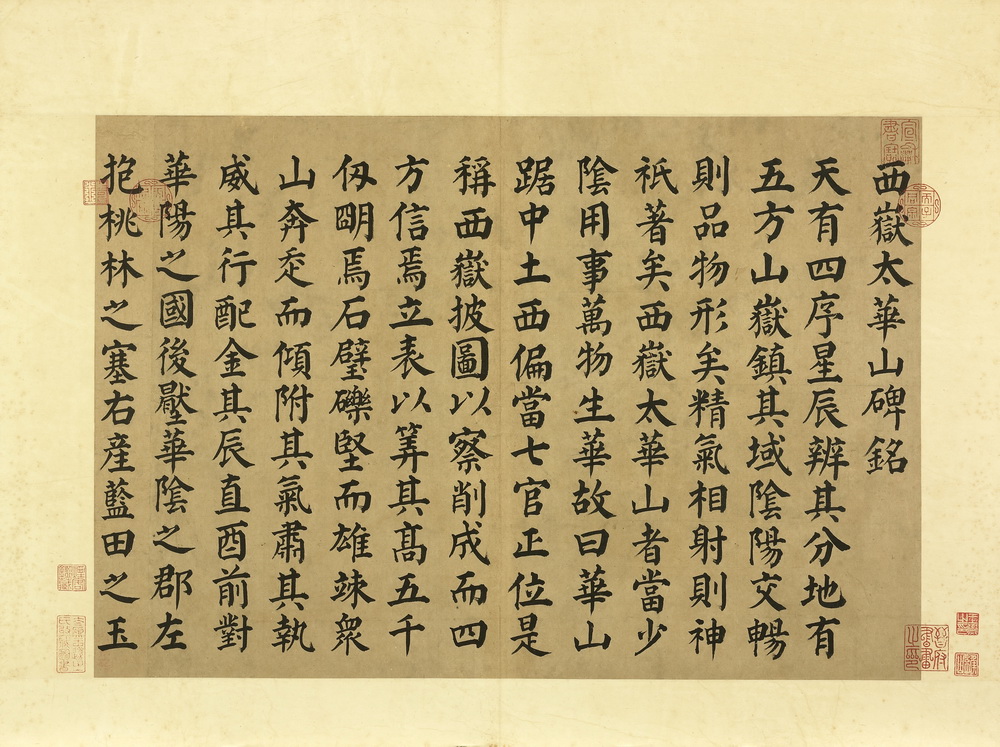 西嶽太華山碑銘
天有四序星辰辨其分地有
五方山嶽鎮其域陰陽交暢
則品物形矣精氣相射則神
祇著矣西嶽太華山者當少
陰用事萬物生華故曰華山
踞中土西偏當七宮正位是
稱西嶽披圖以察削成而四
方信焉立表以筭其高五千
仭朙焉石壁礫堅而雄竦衆
山奔走而傾附其氣肅其執
威其行配金其辰直酉前對
華陽之國後壓華陰之郡左
抱桃林之塞右產藍田之玉